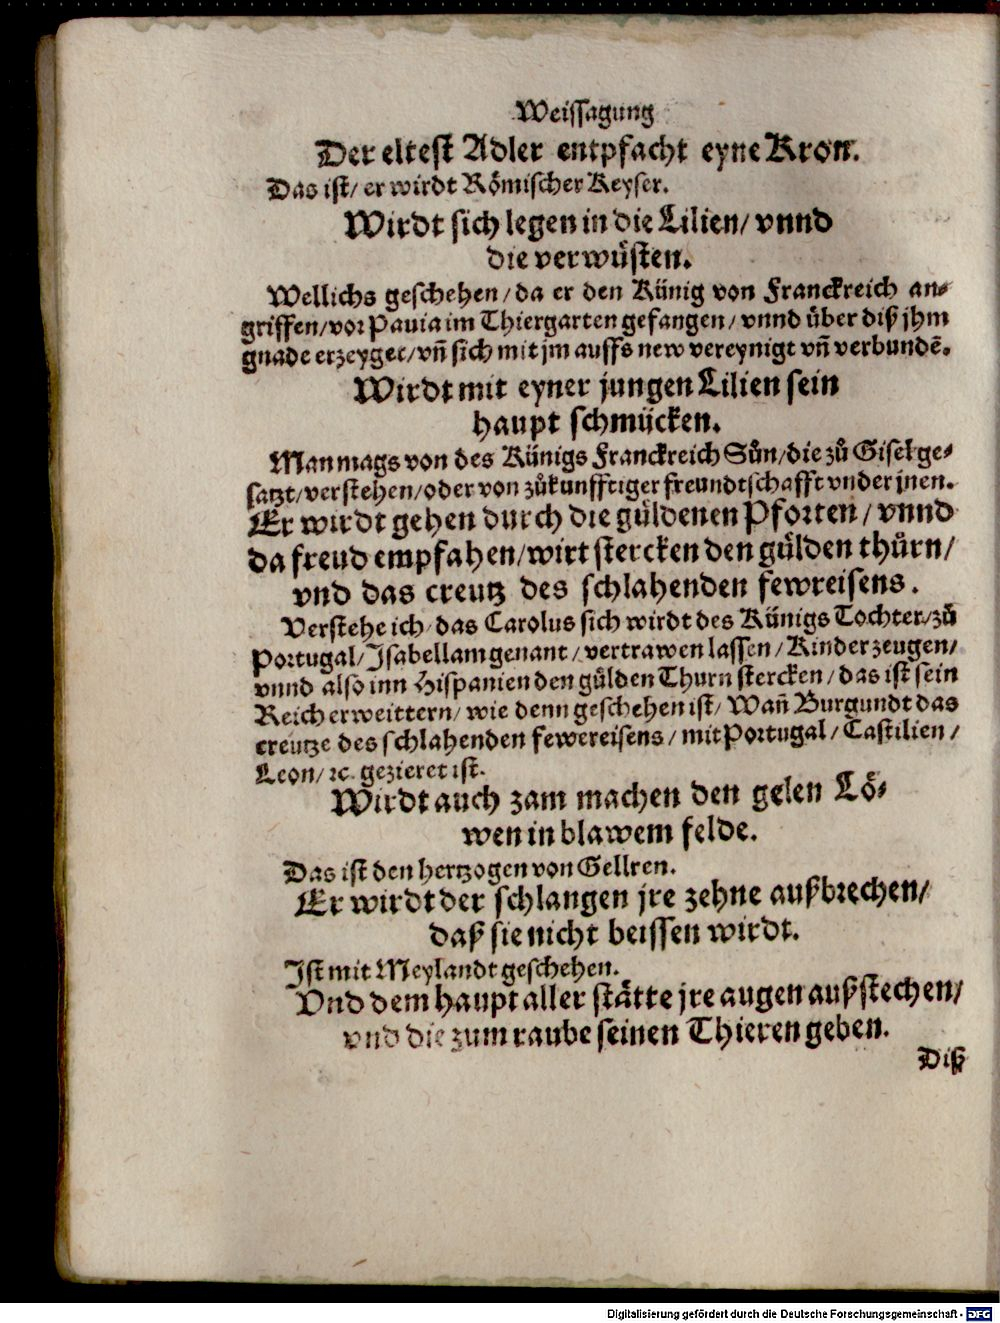 Weissagung
Der eltest Adler entpfacht eyne Kron.
Das ist/ er wirdt Römischer Keyser.
Wirdt sich legen in die Lilien/ vnnd
die verwüsten.
Wellichs geschehen/ da er den Künig von Franckreich an-
griffen/ vor Pauia im Thiergarten gefangen/ vnnd über diß jhm
gnade erzeyget/ vñ sich mit jm auffs new vereynigt vñ verbundẽ.
Wirdt mit eyner jungen Lilien sein
haupt schmücken.
Man mags von des Künigs Franckreich Sün/ die zů Gisel ge-
satzt/ verstehen/ oder von zůkunfftiger freundtschafft vnder jnen.
Er wirdt gehen durch die güldenen Pforten/ vnnd
da freud empfahen/ wirt stercken den gülden thůrn/
vnd das creutz des schlahenden fewreisens.
Verstehe ich das Carolus sich wirdt des Künigs Tochter/ zů
Portugal/ Isabellam genant/ vertrawen lassen/ Kinder zeugen/
vnnd also inn Hispanien den gülden Thurn stercken/ das ist sein
Reich erweittern/ wie denn geschehen ist/ Wañ Burgundt das
creutze des schlahenden fewereisens/ mit Portugal/ Castilien/
Leon/ ꝛc. gezieret ist.
Wirdt auch zam machen den gelen Lö-
wen in blawem felde.
Das ist den hertzogen von Gellren.
Er wirdt der schlangen jre zehne außbrechen/
daß sie nicht beissen wirdt.
Ist mit Meylandt geschehen.
Vnd dem haupt aller stätte jre augen außstechen/
vnd die zum raube seinen Thieren geben.
Diß
Digitalisierung gefördert durch die Deutsche Forschungsgemeinschaft - DFG